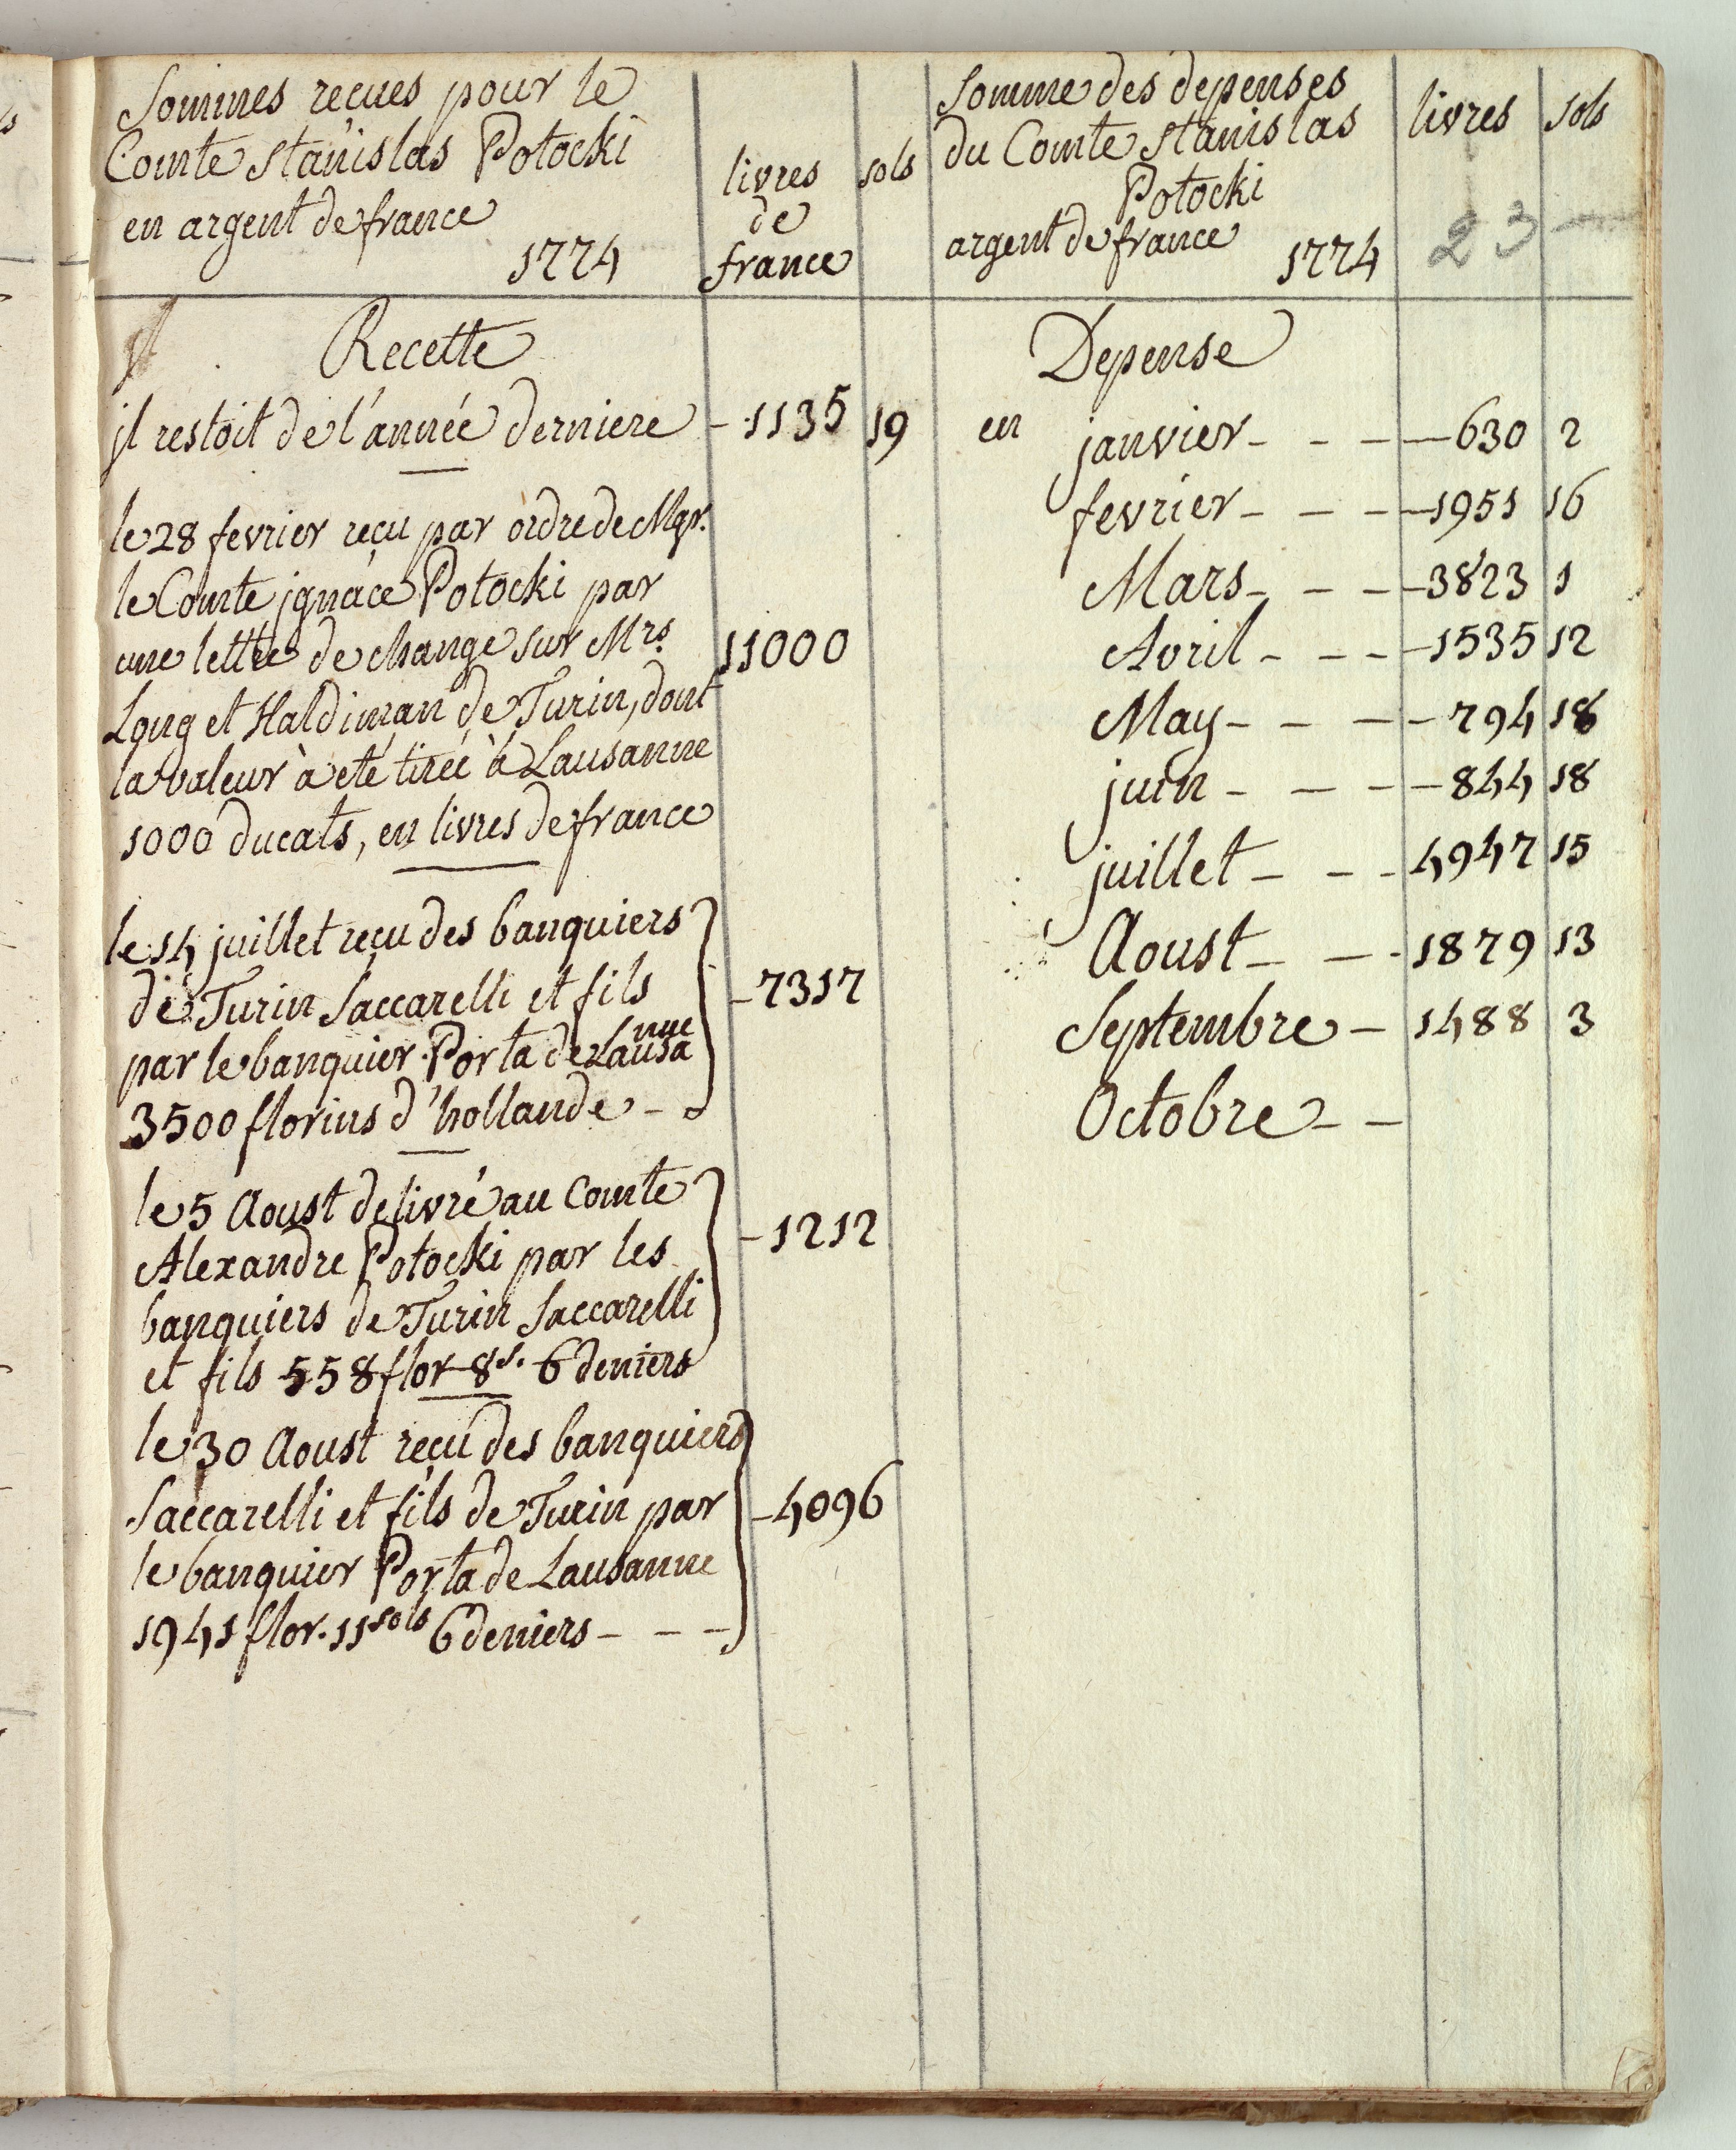 Sommes reçues pour le
Comte stanislas Potocki
en argent de france
1774
livres
de
france
sols
Recette
jl restoit de l'année derniere - 1135 19
le 28 fevrier reçu par ordre de Mgr.
le Comte jgnace Potocki par
une lettre de change sur Mrs. 11000
Long et Haldiman de Turin, dont
la valeur à eté tirée à Lausanne
1000 ducats, en livres de france
le 14 juillet reçu des banquiers
de Turin Saccarelli et fils - 7317
par le banquier Porta de Lausanne
3500 florins d'hollande -
le 5 Aoust delivré au Comte
Alexandre Potocki par les - 1212
banquiers de Turin Saccarelli
et fils 558 flor 8 s. 6 deniers
le 30 Aoust reçu des banquiers
Saccarelli et fils de Turin par - 4096
le banquier Porta de Lausanne
1941 flor. 11 sols 6 deniers - - -
Somme des depenses
du Comte stanislas
Potocki
argent de france 1774
livres
sols
23
Depense
en janvier - - - 630 2
fevrier - - - 1951 16
Mars - - - 3823 1
Avril - - - 1535 12
May - - - 794 18
juin - - - 844 18
juillet - - - 4947 15
Aoust - - - 1879 13
Septembre - 1488 3
Octobre - -